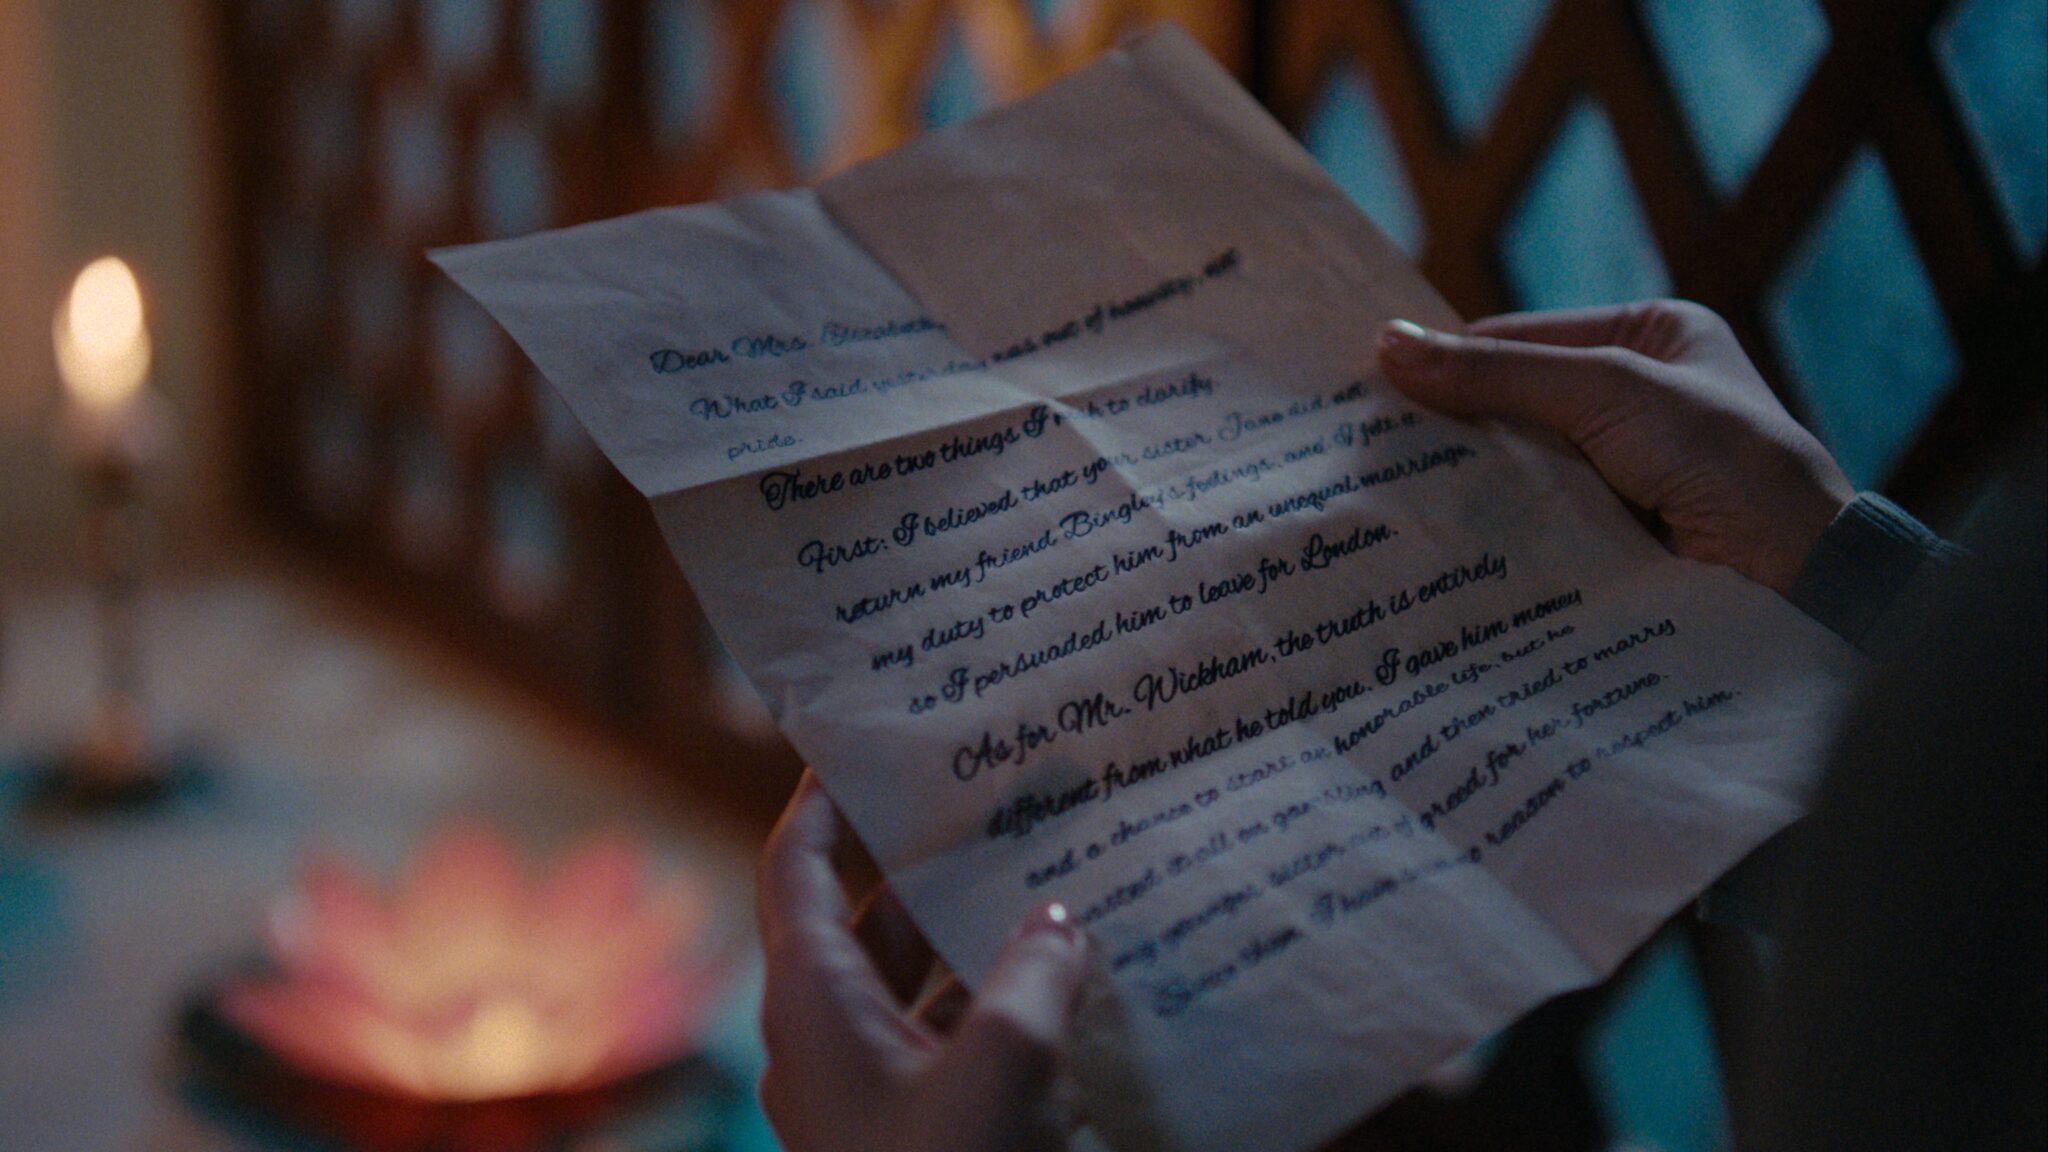 Dear Mrs. Elizabeth,
What I said yesterday was out of honesty, not
pride.
There are two things I wish to clarify.
First: I believed that your sister Jane did not
return my friend Bingley's feelings, and I felt it
my duty to protect him from an unequal marriage,
so I persuaded him to leave for London.
As for Mr. Wickham, the truth is entirely
different from what he told you. I gave him money
and a chance to start an honorable life, but he
wasted it all on gambling and then tried to marry
my younger sister out of greed for her fortune.
Since then I have no reason to respect him.